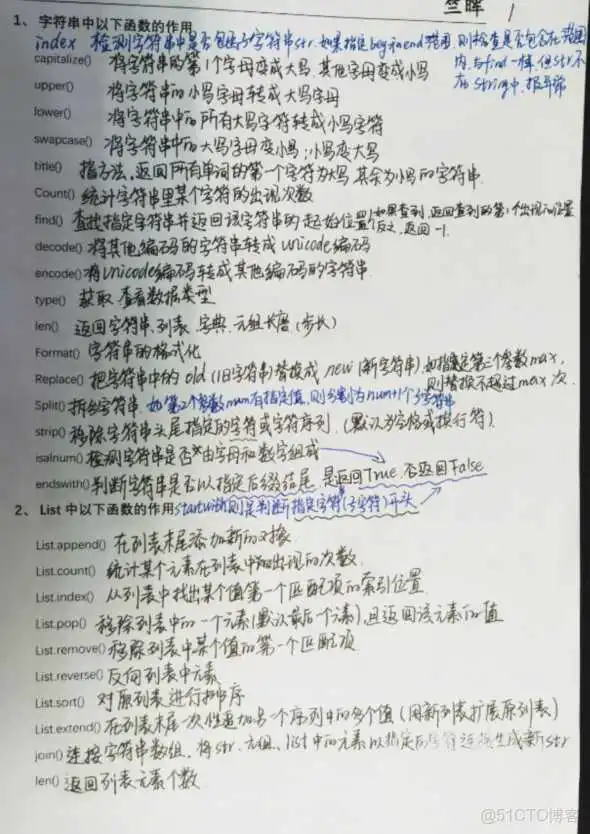 竺晖 1
1、字符串中以下函数的作用
index 检测字符串中是否包含子字符串str.如果指定begin.end范围,则检查是否包含在范围
内,与find一样,但str不
在string中,报异常
capitalize() 将字符串的第1个字母变成大写,其他字母变成小写
upper() 将字符串的小写字母转成大写字母
lower() 将字符串中的所有大写字符转成小写字符
swapcase() 将字符串中的大写字母变小写;小写变大写
title() 指方法,返回所有单词的第一个字符为大写其余为小写的字符串.
Count() 统计字符串里某个字符的出现次数
find() 查找指定字符串并返回该字符串的起始位置(如果查到,返回查到的第1个出现的位置
反之,返回-1.
decode() 将其他编码的字符串转成unicode编码
encode() 将Unicode编码转成其他编码的字符串.
type() 获取.查看数据类型
len() 返回字符串、列表、字典、元组长度(步长)
Format() 字符串的格式化
Replace() 把字符串中的old(旧字符串)替换成new(新字符串),如指定第三个参数max,
则替换不超过max次.
Split() 拆分字符串.如第2个参数num有指定值,则分割为num+1个子字符串
strip() 移除字符串头尾指定的字符或字符序列.(默认为空格或换行符).
isalnum() 检测字符串是否由字母和数字组成
endswith() 判断字符串是否以指定后缀结尾 是返回True.否返回False
2、List 中以下函数的作用 startwith则是判断指定字符(子字符)开头
List.append() 在列表末尾添加新的对象
List.count() 统计某个元素在列表中出现的次数
List.index() 从列表中找出某个值第一个匹配项的索引位置
List.pop() 移除列表中的一个元素(默认最后一个元素),且返回该元素的值
List.remove() 移除列表中某个值的第一个匹配项
List.reverse() 反向列表中元素
List.sort() 对原列表进行排序
List.extend() 在列表末尾一次性追加另一个序列中的多个值(用新列表扩展原列表)
join() 连接字符串数组、将str、元组、list中的元素以指定的字符连接生成新str
len() 返回列表元素个数
@51CTO博客